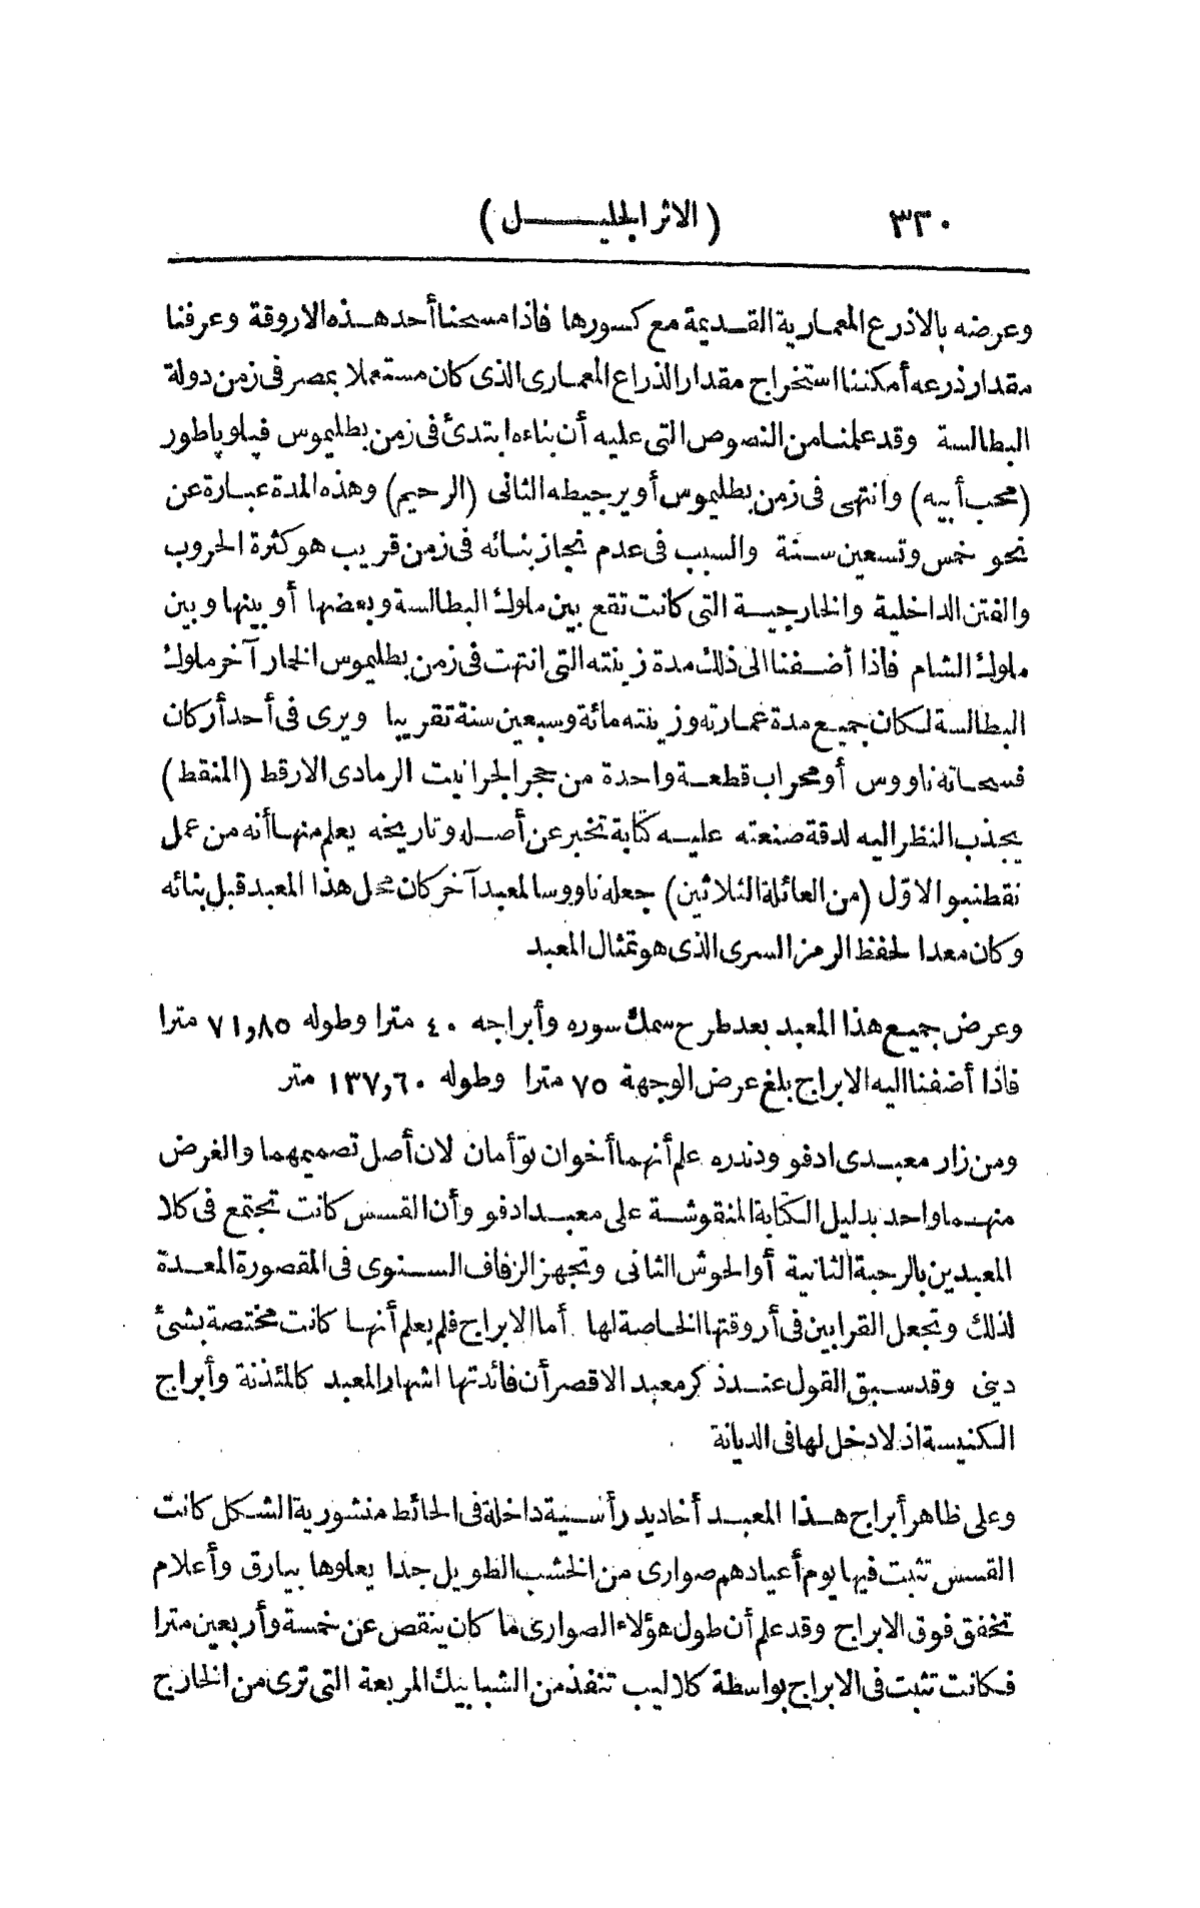 ٣٣٠ (الاثر الجليل)
وعرضه بالاذرع المعمارية القديمة مع كسورها فاذا مسحنا أحد هذه الاروقة وعرفنا
مقدار ذرعه أمكننا استخراج مقدار الذراع المعمارى الذى كان مستعملا بمصر فى زمن دولة
البطالسة وقد علمنا من النصوص التى عليه أن بناءه ابتدئ فى زمن بطليموس فيلوپاطور
(محب أبيه) وانتهى فى زمن بطليموس أويرجيطه الثانى (الرحيم) وهذه المدة عبارة عن
نحو خمس وتسعين سنة والسبب فى عدم نجاز بنائه فى زمن قريب هو كثرة الحروب
والفتن الداخلية والخارجية التى كانت تقع بين ملوك البطالسة وبعضها أو بينها وبين
ملوك الشام فاذا أضفنا الى ذلك مدة زينته التى انتهت فى زمن بطليموس الخمار آخر ملوك
البطالسة لكان جميع مدة عمارته وزينته مائة وسبعين سنة تقريبا ويرى فى أحد أركان
فسحاته ناووس أو محراب قطعة واحدة من حجر الجرانيت الرمادى الارقط (المنقط)
يجذب النظر اليه لدقة صنعته عليه كتابة تخبر عن أصله وتاريخه يعلم منها أنه من عمل
نقطنبو الاوّل (من العائلة الثلاثين) جعله ناووسا لمعبد آخر كان محل هذا المعبد قبل بنائه
وكان معدا لحفظ الرمز السرى الذى هو تمثال المعبد
وعرض جميع هذا المعبد بعد طرح سمك سوره وأبراجه ٤٠ مترا وطوله ٧١,٨٥ مترا
فاذا أضفنا اليه الابراج بلغ عرض الوجهة ٧٥ مترا وطوله ١٣٧,٦٠ متر
ومن زار معبدى ادفو ودندره علم أنهما أخوان توّأمان لان أصل تصميمهما والغرض
منهما واحد بدليل الكتابة المنقوشة على معبد ادفو وأن القسس كانت تجتمع فى كلا
المعبدين بالرحبة الثانية أو الحوش الثانى وتجهز الزفاف السنوى فى المقصورة المعدة
لذلك وتجعل القرابين فى أروقتها الخاصة لها أما الابراج فلم يعلم أنها كانت مختصة بشئ
دينى وقد سبق القول عند ذكر معبد الاقصر أن فائدتها اشهار المعبد كالمئذنة وأبراج
الكنيسة اذ لا دخل لها فى الديانة
وعلى ظاهر أبراج هذا المعبد أخاديد رأسية داخلة فى الحائط منشورية الشكل كانت
القسس تثبت فيها يوم أعيادهم صوارى من الخشب الطويل جدا يعلوها بيارق وأعلام
تخفق فوق الابراج وقد علم أن طول هؤلاء الصوارى ما كان ينقص عن خمسة وأربعين مترا
فكانت تثبت فى الابراج بواسطة كلاليب تنفذ من الشبابيك المربعة التى ترى من الخارج